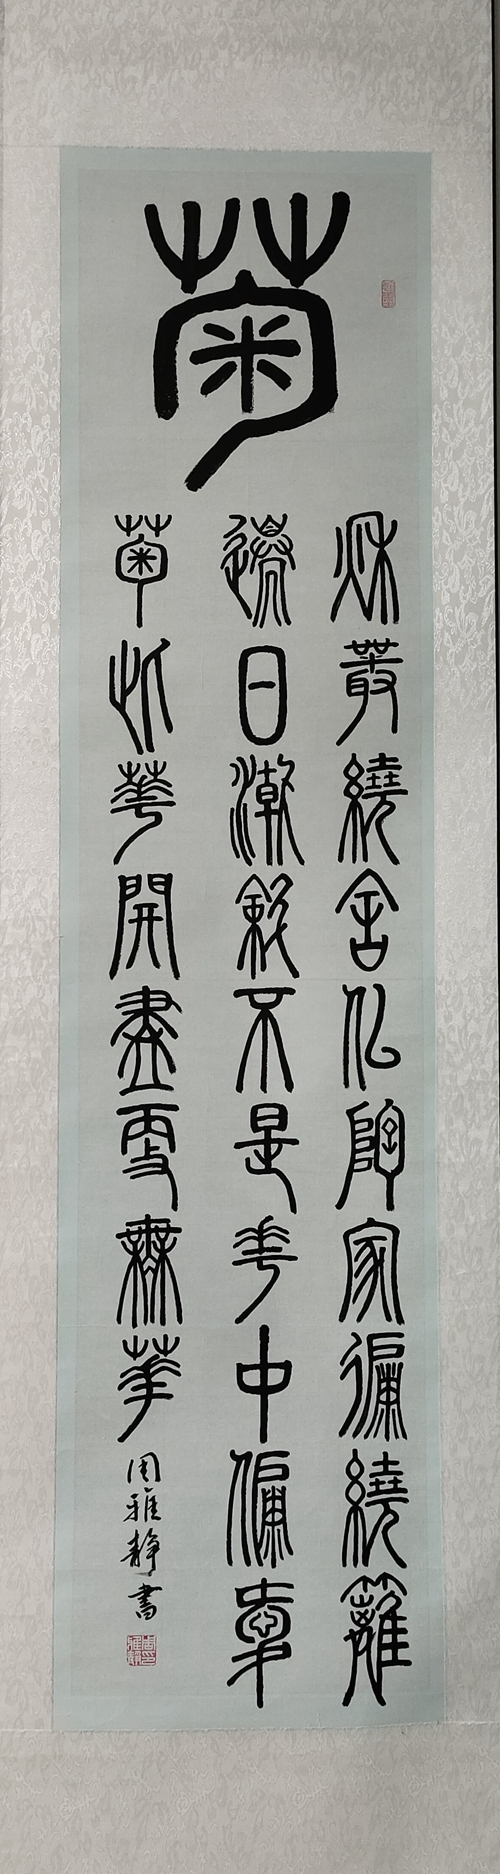 菊
秌叢繞舍佀陶家徧繞籬
邊日漸斜不是華中偏愛
菊此華開盡更無華
周雅静書